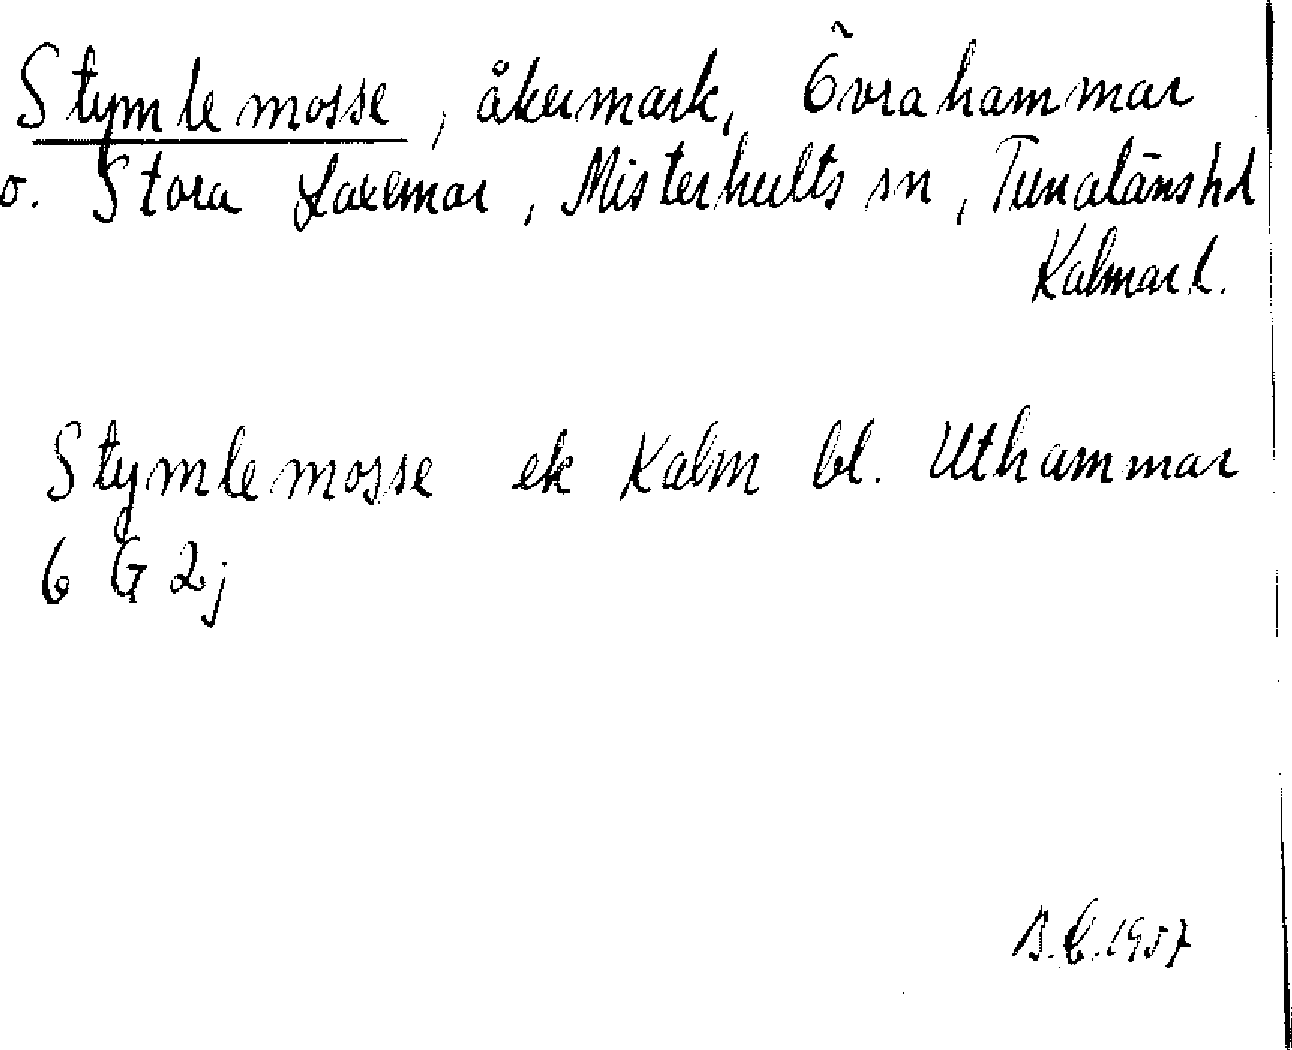 Stymlemosse, åkermark, Övrahammar
o. Stora Laxemar, Misterhults sn, Tunaläns hd
Kalmar l.
Stymlemosse ek Kalm bl. Uthammar
6 G 2j
1957